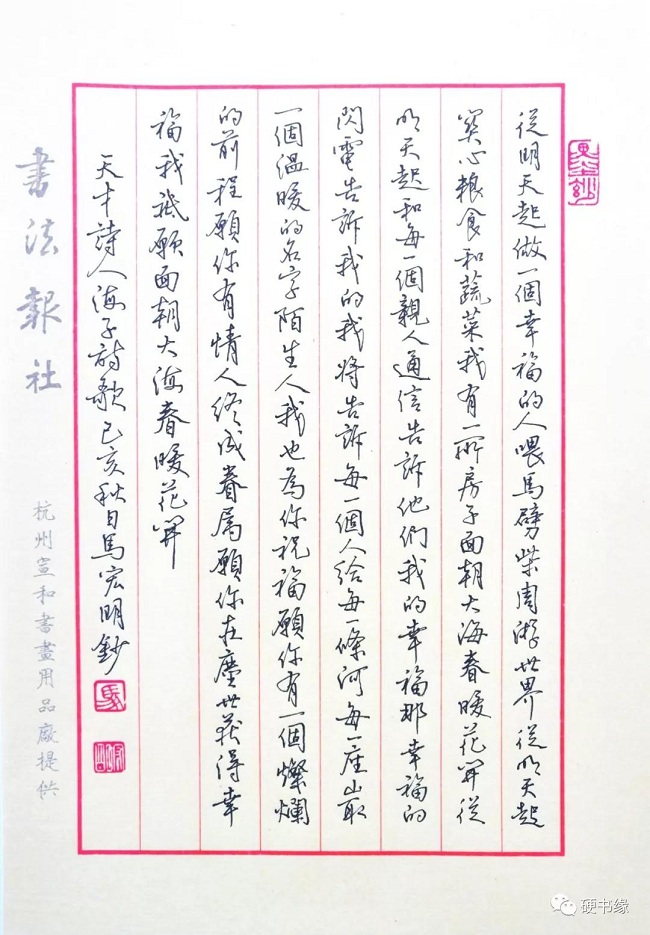 從明天起做一個幸福的人喂馬劈柴周游世界從明天起
關心粮食和蔬菜我有一所房子面朝大海春暖花開從
明天起和每一個親人通信告訴他們我的幸福那幸福的
閃電告訴我的我將告訴每一個人給每一條河每一座山取
一個溫暖的名字陌生人我也為你祝福願你有一個燦爛
的前程願你有情人終成眷屬願你在塵世獲得幸
福我祇願面朝大海春暖花開
天才詩人海子詩歌己亥秋日馬宏明鈔
馬
書法報社
杭州宣和書畫用品廠提供
硬书缘